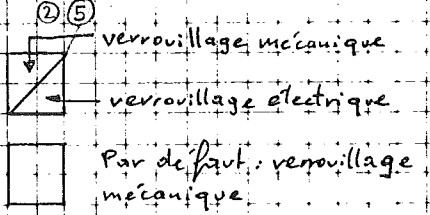 ② ⑤
verrouillage mécanique
verrouillage électrique
Par défaut : verrouillage
mécanique